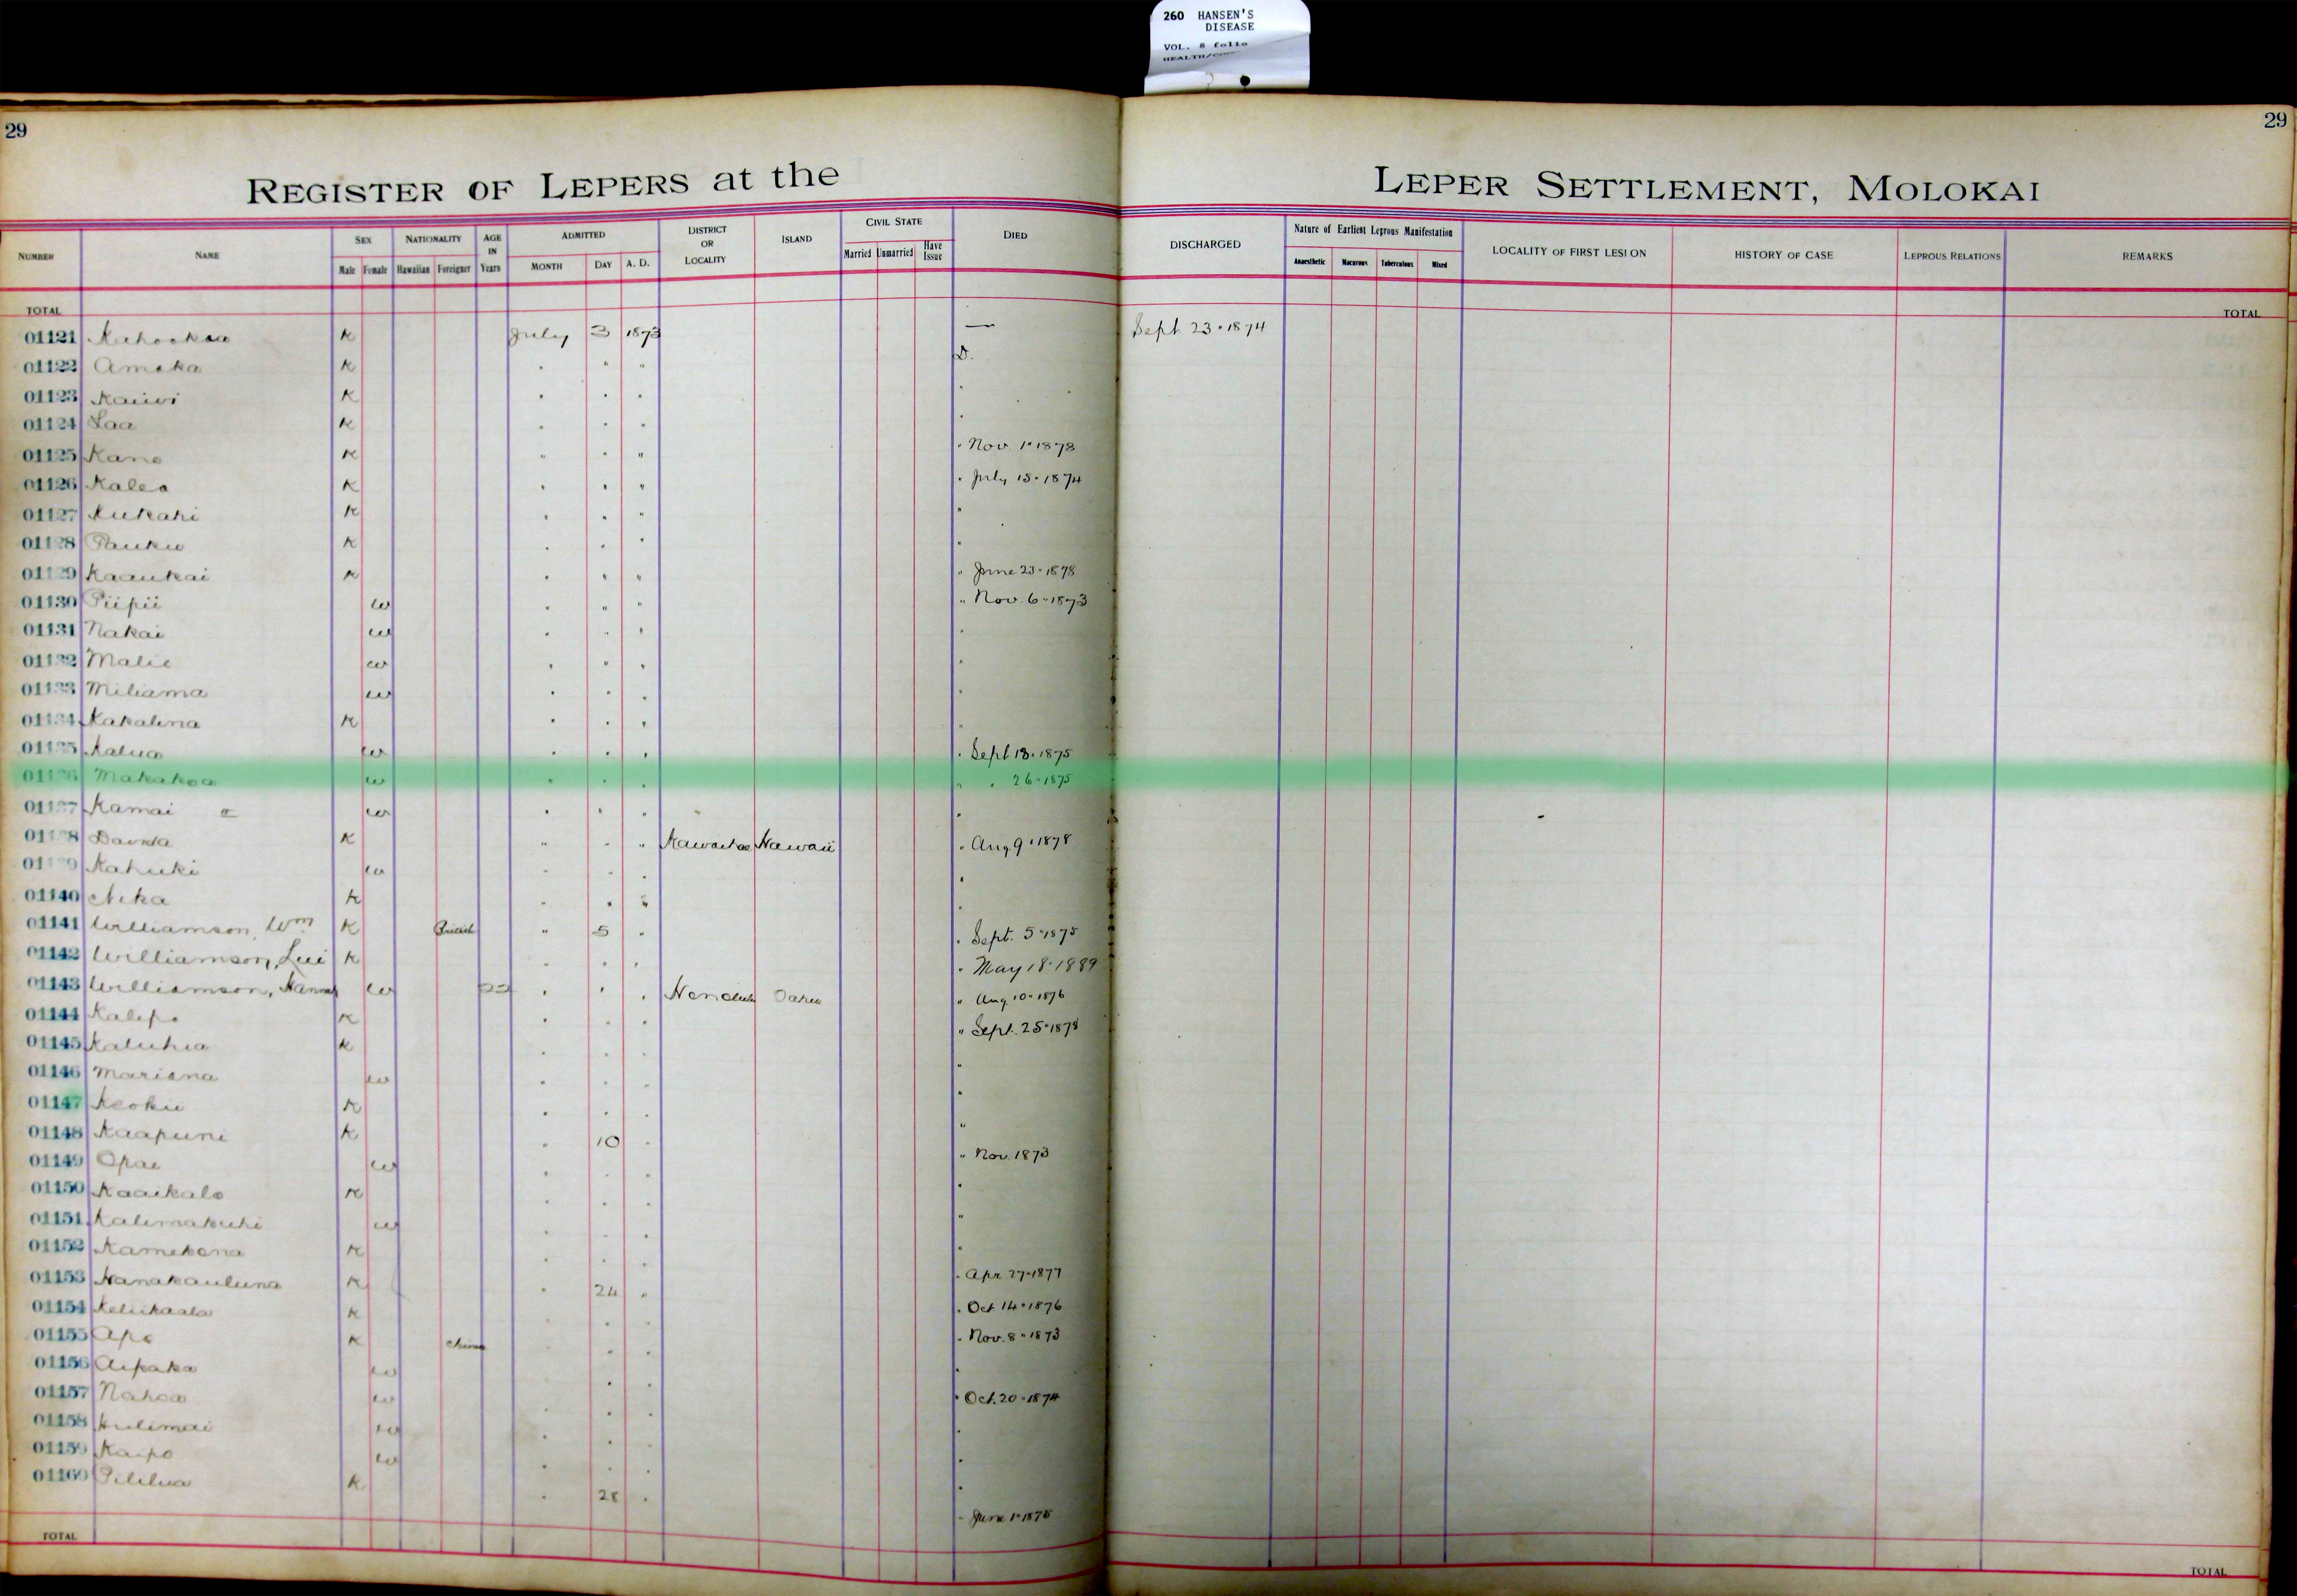 260 HANSEN'S
DISEASE
VOL. 8 folio
29
29
REGISTER OF LEPERS at the LEPER SETTLEMENT, MOLOKAI
NUMBER NAME SEX NATIONALITY AGE IN Years ADMITTED DISTRICT OR LOCALITY ISLAND CIVIL STATE DIED DISCHARGED Nature of Earliest Leprous Manifestation LOCALITY OF FIRST LESION HISTORY OF CASE LEPROUS RELATIONS REMARKS
Male Female Hawaiian Foreigner MONTH DAY A. D. Married Unmarried Have Issue Anaesthetic Macurous Tuberculous Mixed
TOTAL TOTAL
01121 K July 3 1873 — Sept 23 · 1874
01122 Amaka K " " " D.
01123 Kaiwi K " " " "
01124 Laa K " " " "
01125 Kane K " " " " Nov. 1 · 1878
01126 Kalea K " " " " July 15 · 1874
01127 Kukahi K " " " "
01128 Pauku K " " " "
01129 Kaaukai K " " " " June 23 · 1878
01130 Piipii w " " " " Nov. 6 · 1873
01131 Nakai w " " " "
01132 Malie w " " " "
01133 Miliama w " " " "
01134 Kakalina K " " " "
01135 Kalua w " " " " Sept 18 · 1875
01136 Makakoa w " " " " " 26 · 1875
01137 Kamai w " " " "
01138 K " " " Kawaihae Hawaii " Aug 9 · 1878
01139 Kahuki w " " " "
01140 Nika K " " " "
01141 Williamson, Wm K British " 5 " " Sept. 5 · 1875
01142 Williamson, Lui K " " " " May 18 · 1889
01143 Williamson, w " " " Honolulu Oahu " Aug. 10 · 1876
01144 Kalepo K " " " " Sept. 25 · 1878
01145 Kaluhia K " " " "
01146 Mariana w " " " "
01147 Keoku K " " " "
01148 Kaapuni K " 10 " "
01149 Opae w " " " " Nov. 1873
01150 Kaaikalo K " " " "
01151 Kalimakuhi w " " " "
01152 Kamekona K " " " "
01153 Nanakauluna K " 24 " " Apr 27 · 1877
01154 Keliikaala K " " " " Oct 14 · 1876
01155 Apo K China " " " " Nov. 8 · 1873
01156 Aipaka w " " " "
01157 Nahoa w " " " " Oct. 20 · 1874
01158 w " " " "
01159 Kaipo w " " " "
01160 Pilelua K " 28 " " June 1 · 1875
TOTAL TOTAL